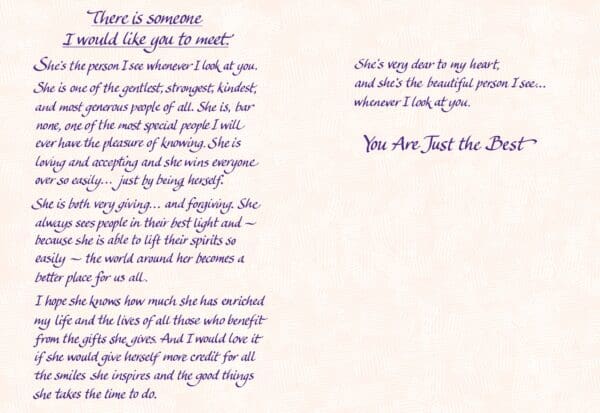 There is someone
I would like you to meet.
She's the person I see whenever I look at you.
She is one of the gentlest, strongest, kindest,
and most generous people of all. She is, bar
none, one of the most special people I will
ever have the pleasure of knowing. She is
loving and accepting and she wins everyone
over so easily... just by being herself.
She is both very giving... and forgiving. She
always sees people in their best light and ~
because she is able to lift their spirits so
easily ~ the world around her becomes a
better place for us all.
I hope she knows how much she has enriched
my life and the lives of all those who benefit
from the gifts she gives. And I would love it
if she would give herself more credit for all
the smiles she inspires and the good things
she takes the time to do.
She's very dear to my heart,
and she's the beautiful person I see...
whenever I look at you.
You Are Just the Best